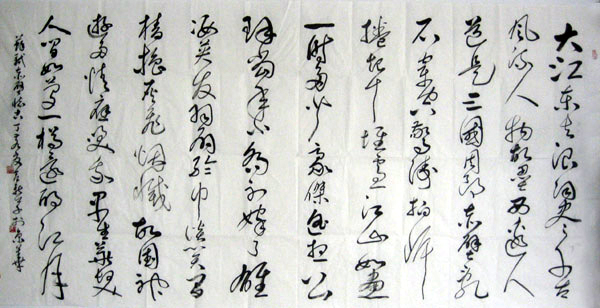 大江东去浪淘尽千古
风流人物故垒西边人
道是三國周郎赤壁乱
石穿空惊涛拍岸
捲起千堆雪江山如画
一时多少豪傑遥想公
瑾当年小乔初嫁了雄
姿英发羽扇纶巾谈笑间
樯橹灰飞烟灭故国神
游多情应笑我早生华髮
人间如梦一樽还酹江月
苏轼赤壁怀古丁亥